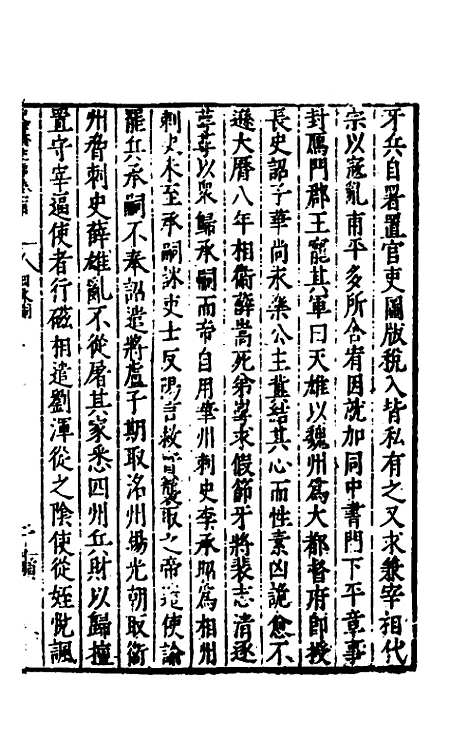 牙兵自署置官吏圖版稅入皆私有之又求兼宰相代
宗以寇亂甫平多所含宥因就加同中書門下平章事
封鴈門郡王寵其軍曰天雄以魏州爲大都督府即授
長史詔子華尚永樂公主冀結其心而性素凶詭愈不
遜大曆八年相衛薛嵩死弟崿求假節牙將裴志清逐
崿崿以衆歸承嗣而帝自用華州刺史李承昭爲相州
刺史未至承嗣詠吏士反陽言救實襲取之帝遣使諭
罷兵承嗣不奉詔遣將盧子期取洺州楊光朝取衛
州脅刺史薛雄亂不從屠其家悉四州兵財以歸擅
置守宰逼使者行磁相遣劉渾從之陰使從姪悅諷